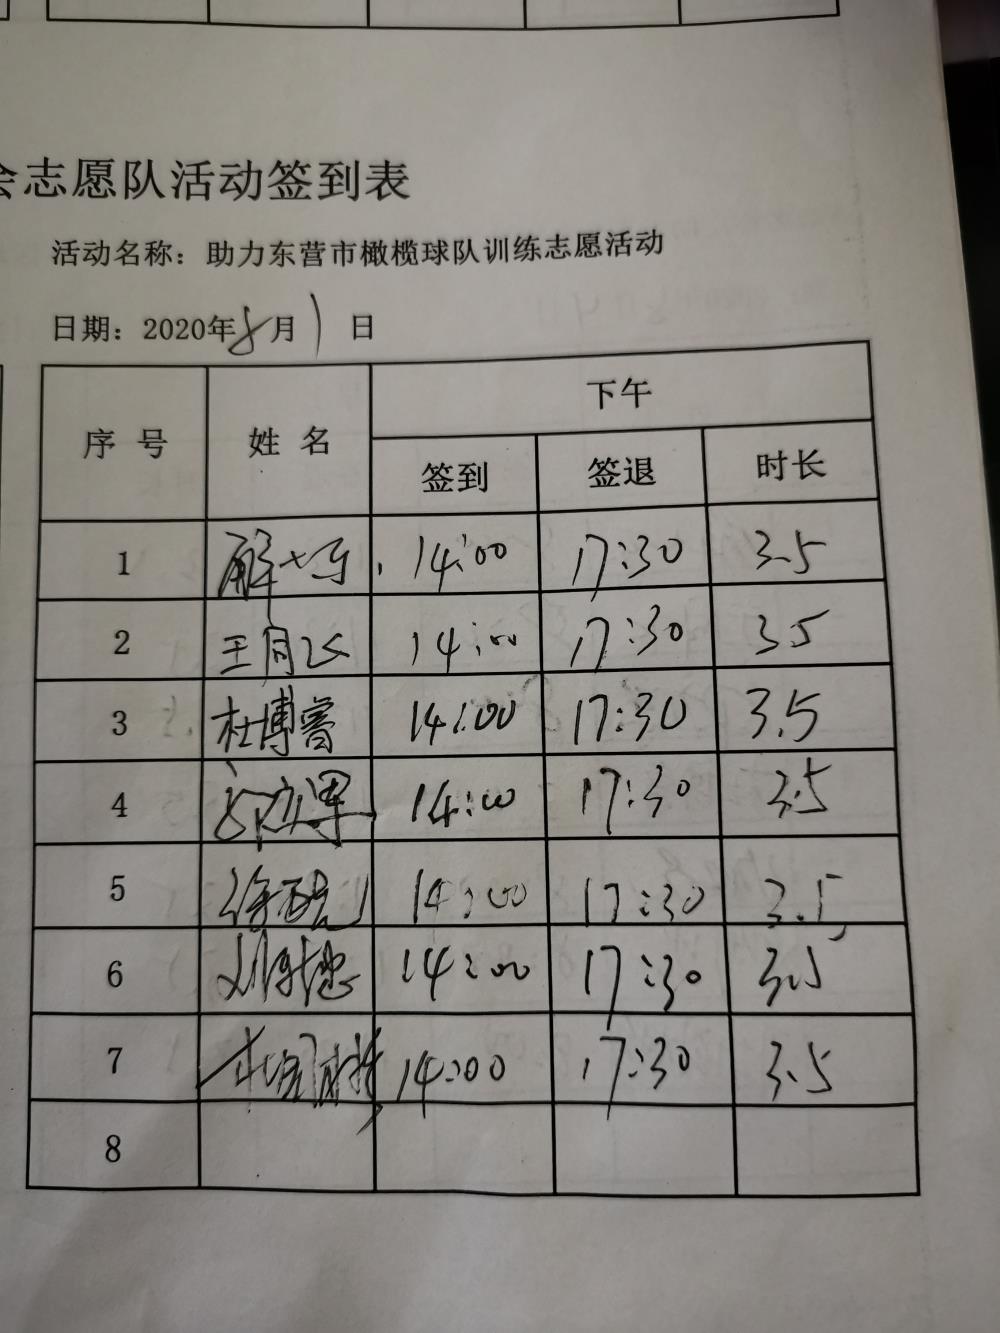 会志愿队活动签到表
活动名称：助力东营市橄榄球队训练志愿活动
日期：2020年8月1日
序号 姓名 下午
签到 签退 时长
1 14:00 17:30 3.5
2 14:00 17:30 3.5
3 杜博睿 14:00 17:30 3.5
4 14:00 17:30 3.5
5 14:00 17:30 3.5
6 14:00 17:30 3.5
7 14:00 17:30 3.5
8